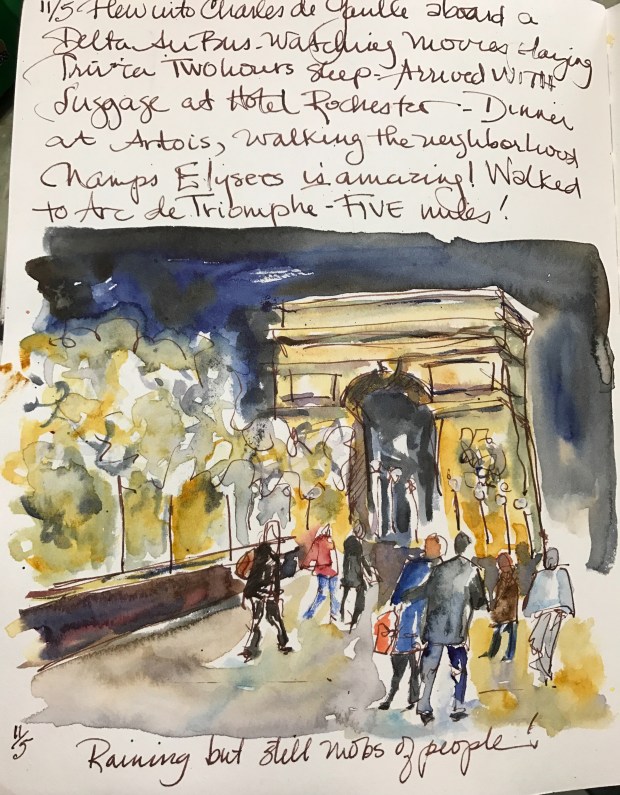 11/5 Flew into Charles de Gaulle aboard a
Delta AirBus - Watching movies playing
Trivia Two hours sleep - Arrived WITH
Luggage at Hotel Rochester - Dinner
at Artois, walking the neighborhood
Champs Elysees is amazing! Walked
to Arc de Triomphe - FIVE miles!
11/5
Raining but still mobs of people!